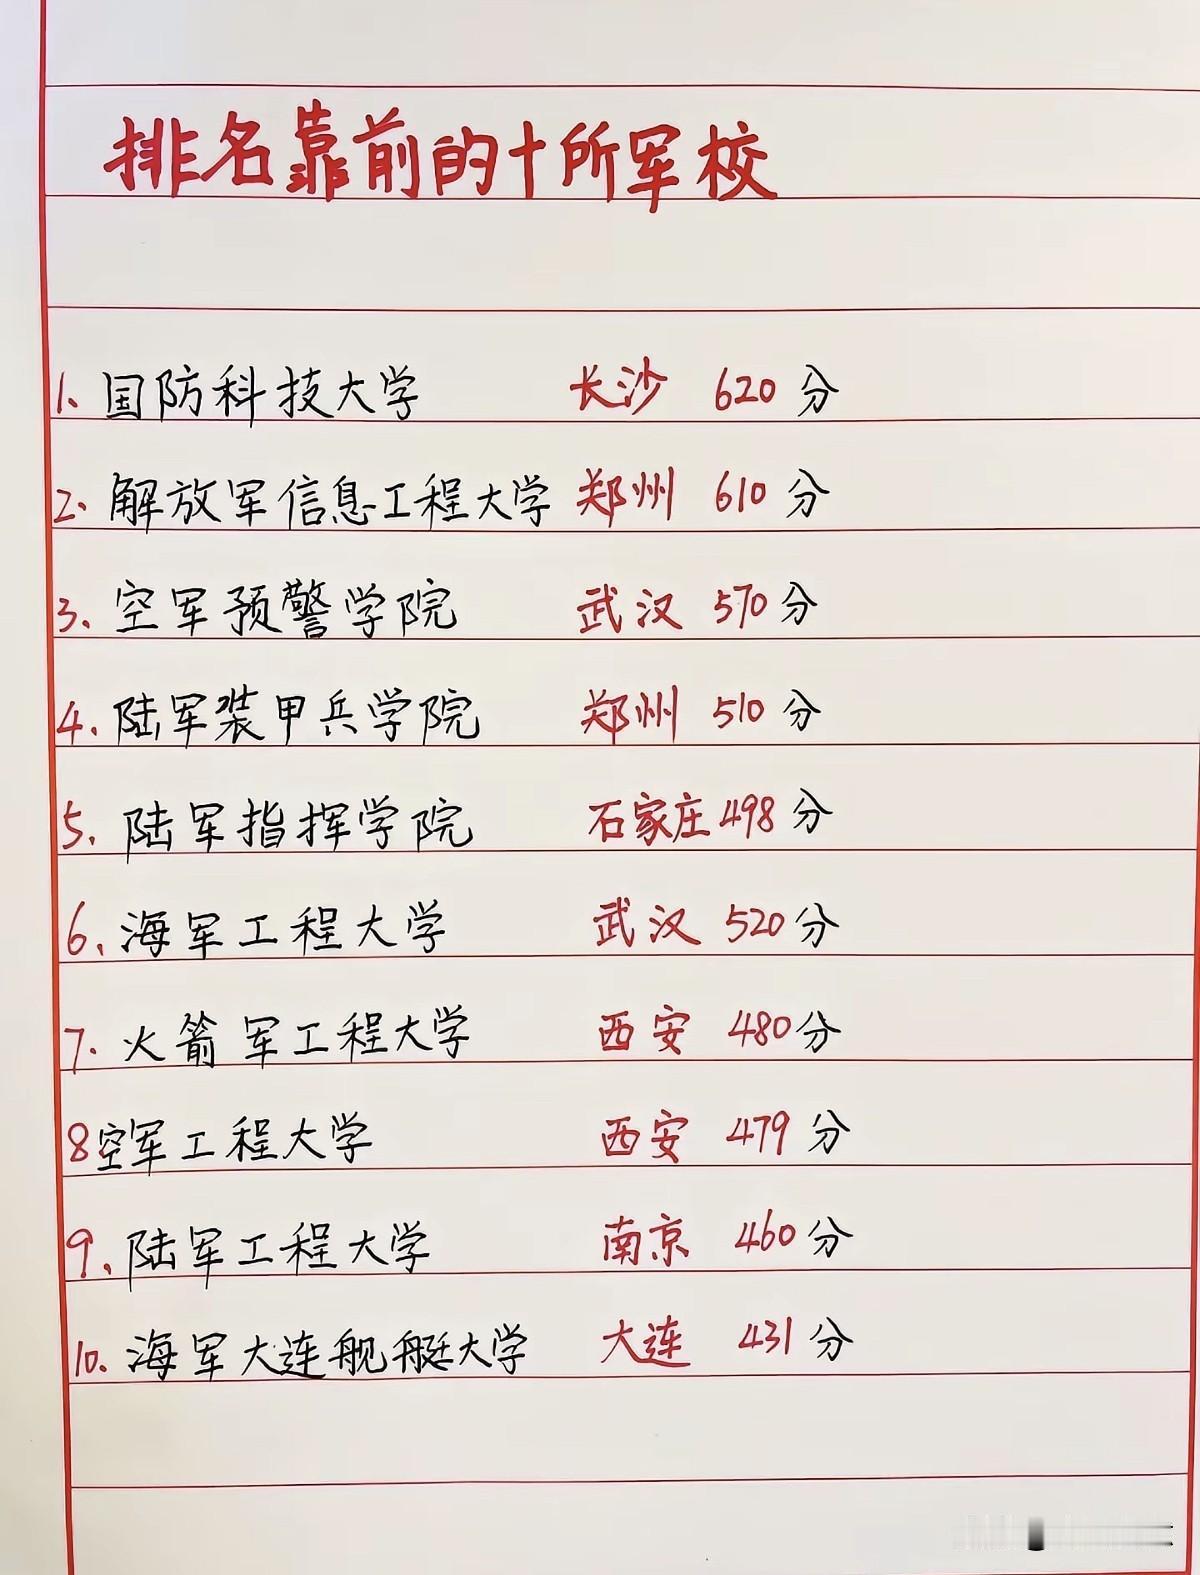 排名靠前的十所军校
1. 国防科技大学 长沙 620分
2. 解放军信息工程大学 郑州 610分
3. 空军预警学院 武汉 570分
4. 陆军装甲兵学院 郑州 510分
5. 陆军指挥学院 石家庄 498分
6. 海军工程大学 武汉 520分
7. 火箭军工程大学 西安 480分
8 空军工程大学 西安 479分
9. 陆军工程大学 南京 460分
10. 海军大连舰艇大学 大连 431分